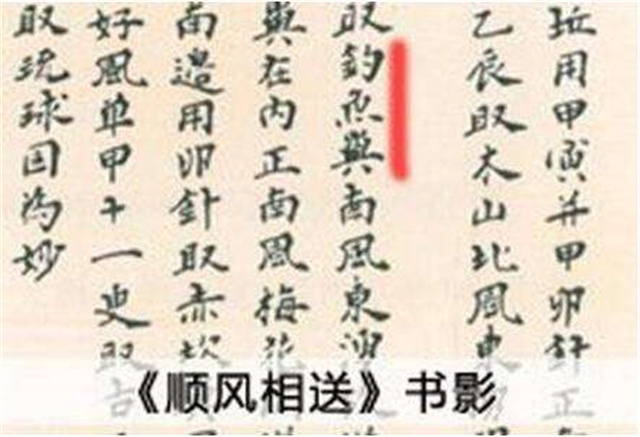 坵用甲寅并甲卯針正
乙辰取木山北風東
取釣魚嶼南風東湧
嶼在内正南風梅花
南邉用卯針取赤坎
好風单甲十一更取古
取琉球国為妙
《顺风相送》书影